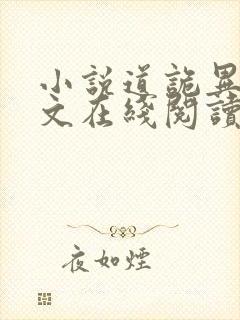 小説道詭異
文在綫閱讀
夜如煙